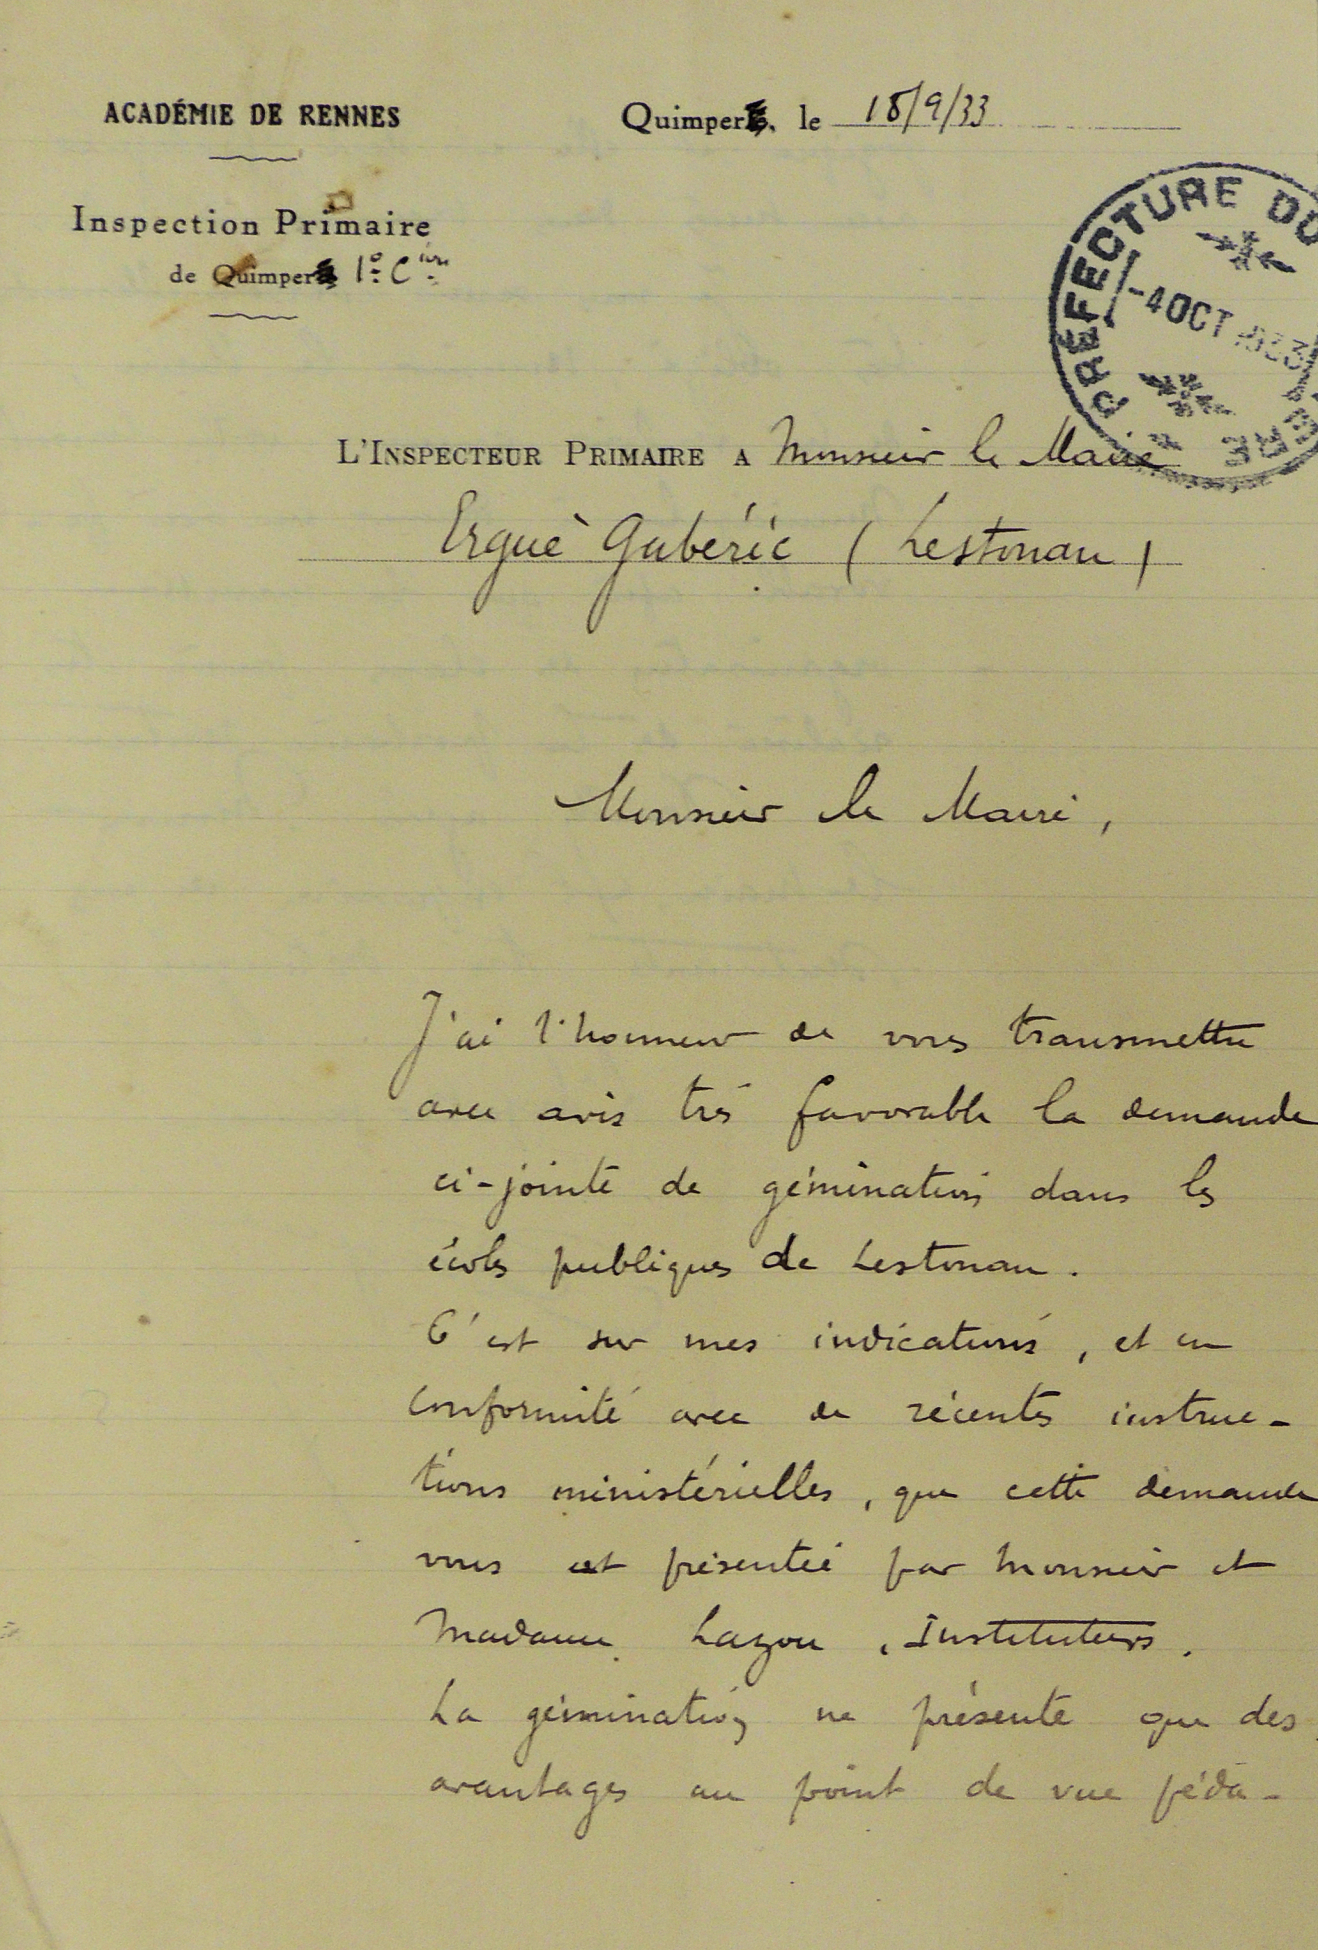 ACADÉMIE DE RENNES
Quimper, le 18/9/33
Inspection Primaire
de Quimper 1º Cion
PRÉFECTURE DU
-4 OCT 1933
ÈRE
L'INSPECTEUR PRIMAIRE A Monsieur le Maire
Ergué Gabéric (Lestonan)
Monsieur le Maire,
J'ai l'honneur de vous transmettre
avec avis très favorable la demande
ci-jointe de gémination dans les
écoles publiques de Lestonan.
C'est sur mes indications, et en
conformité avec de récentes instruc-
tions ministérielles, que cette demande
vous est présentée par Monsieur et
Madame Lazou, Instituteurs.
La gémination ne présente que des
avantages au point de vue péda-